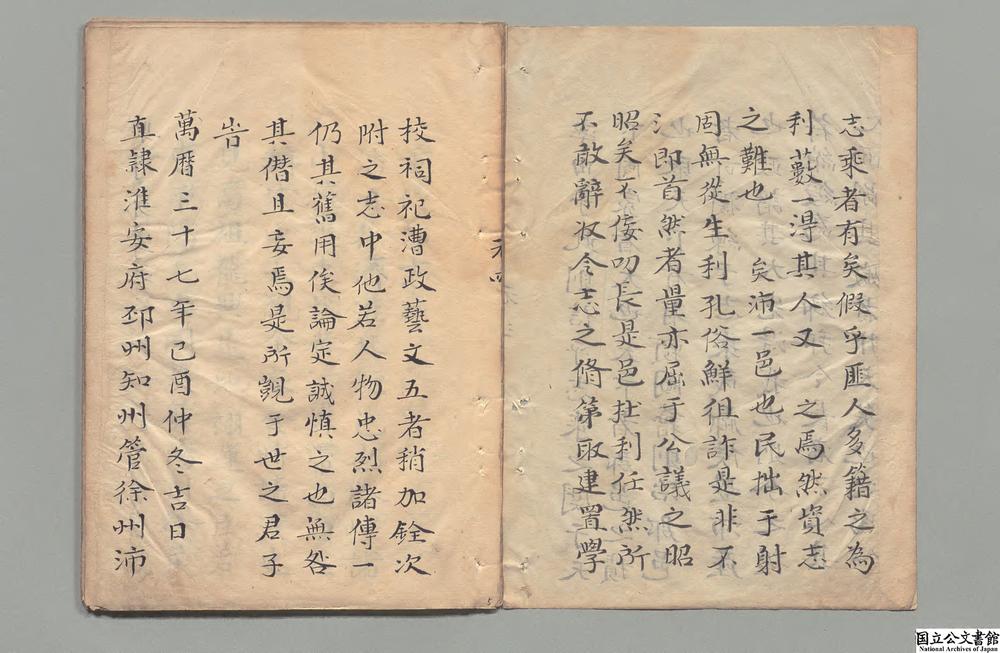 志乘者有矣假乎匪人多籍之為
利藪一淂其人又之焉然貲志
之難也矣沛一邑也民拙于射
固無從生利孔俗鮮徂詐是非不
即首然者量亦屈于公議之昭
昭矣不佞叨長是邑抂利任然所
不敢辭攷今志之脩第取建置學
校祠祀漕政藝文五者稍加銓次
附之志中他若人物忠烈諸傳一
仍其舊用俟論定誠慎之也無咎
其僭且妄焉是所覬于世之君子
旹
萬曆三十七年己酉仲冬吉日
直隸淮安府邳州知州管徐州沛
国立公文書館
National Archives of Japan